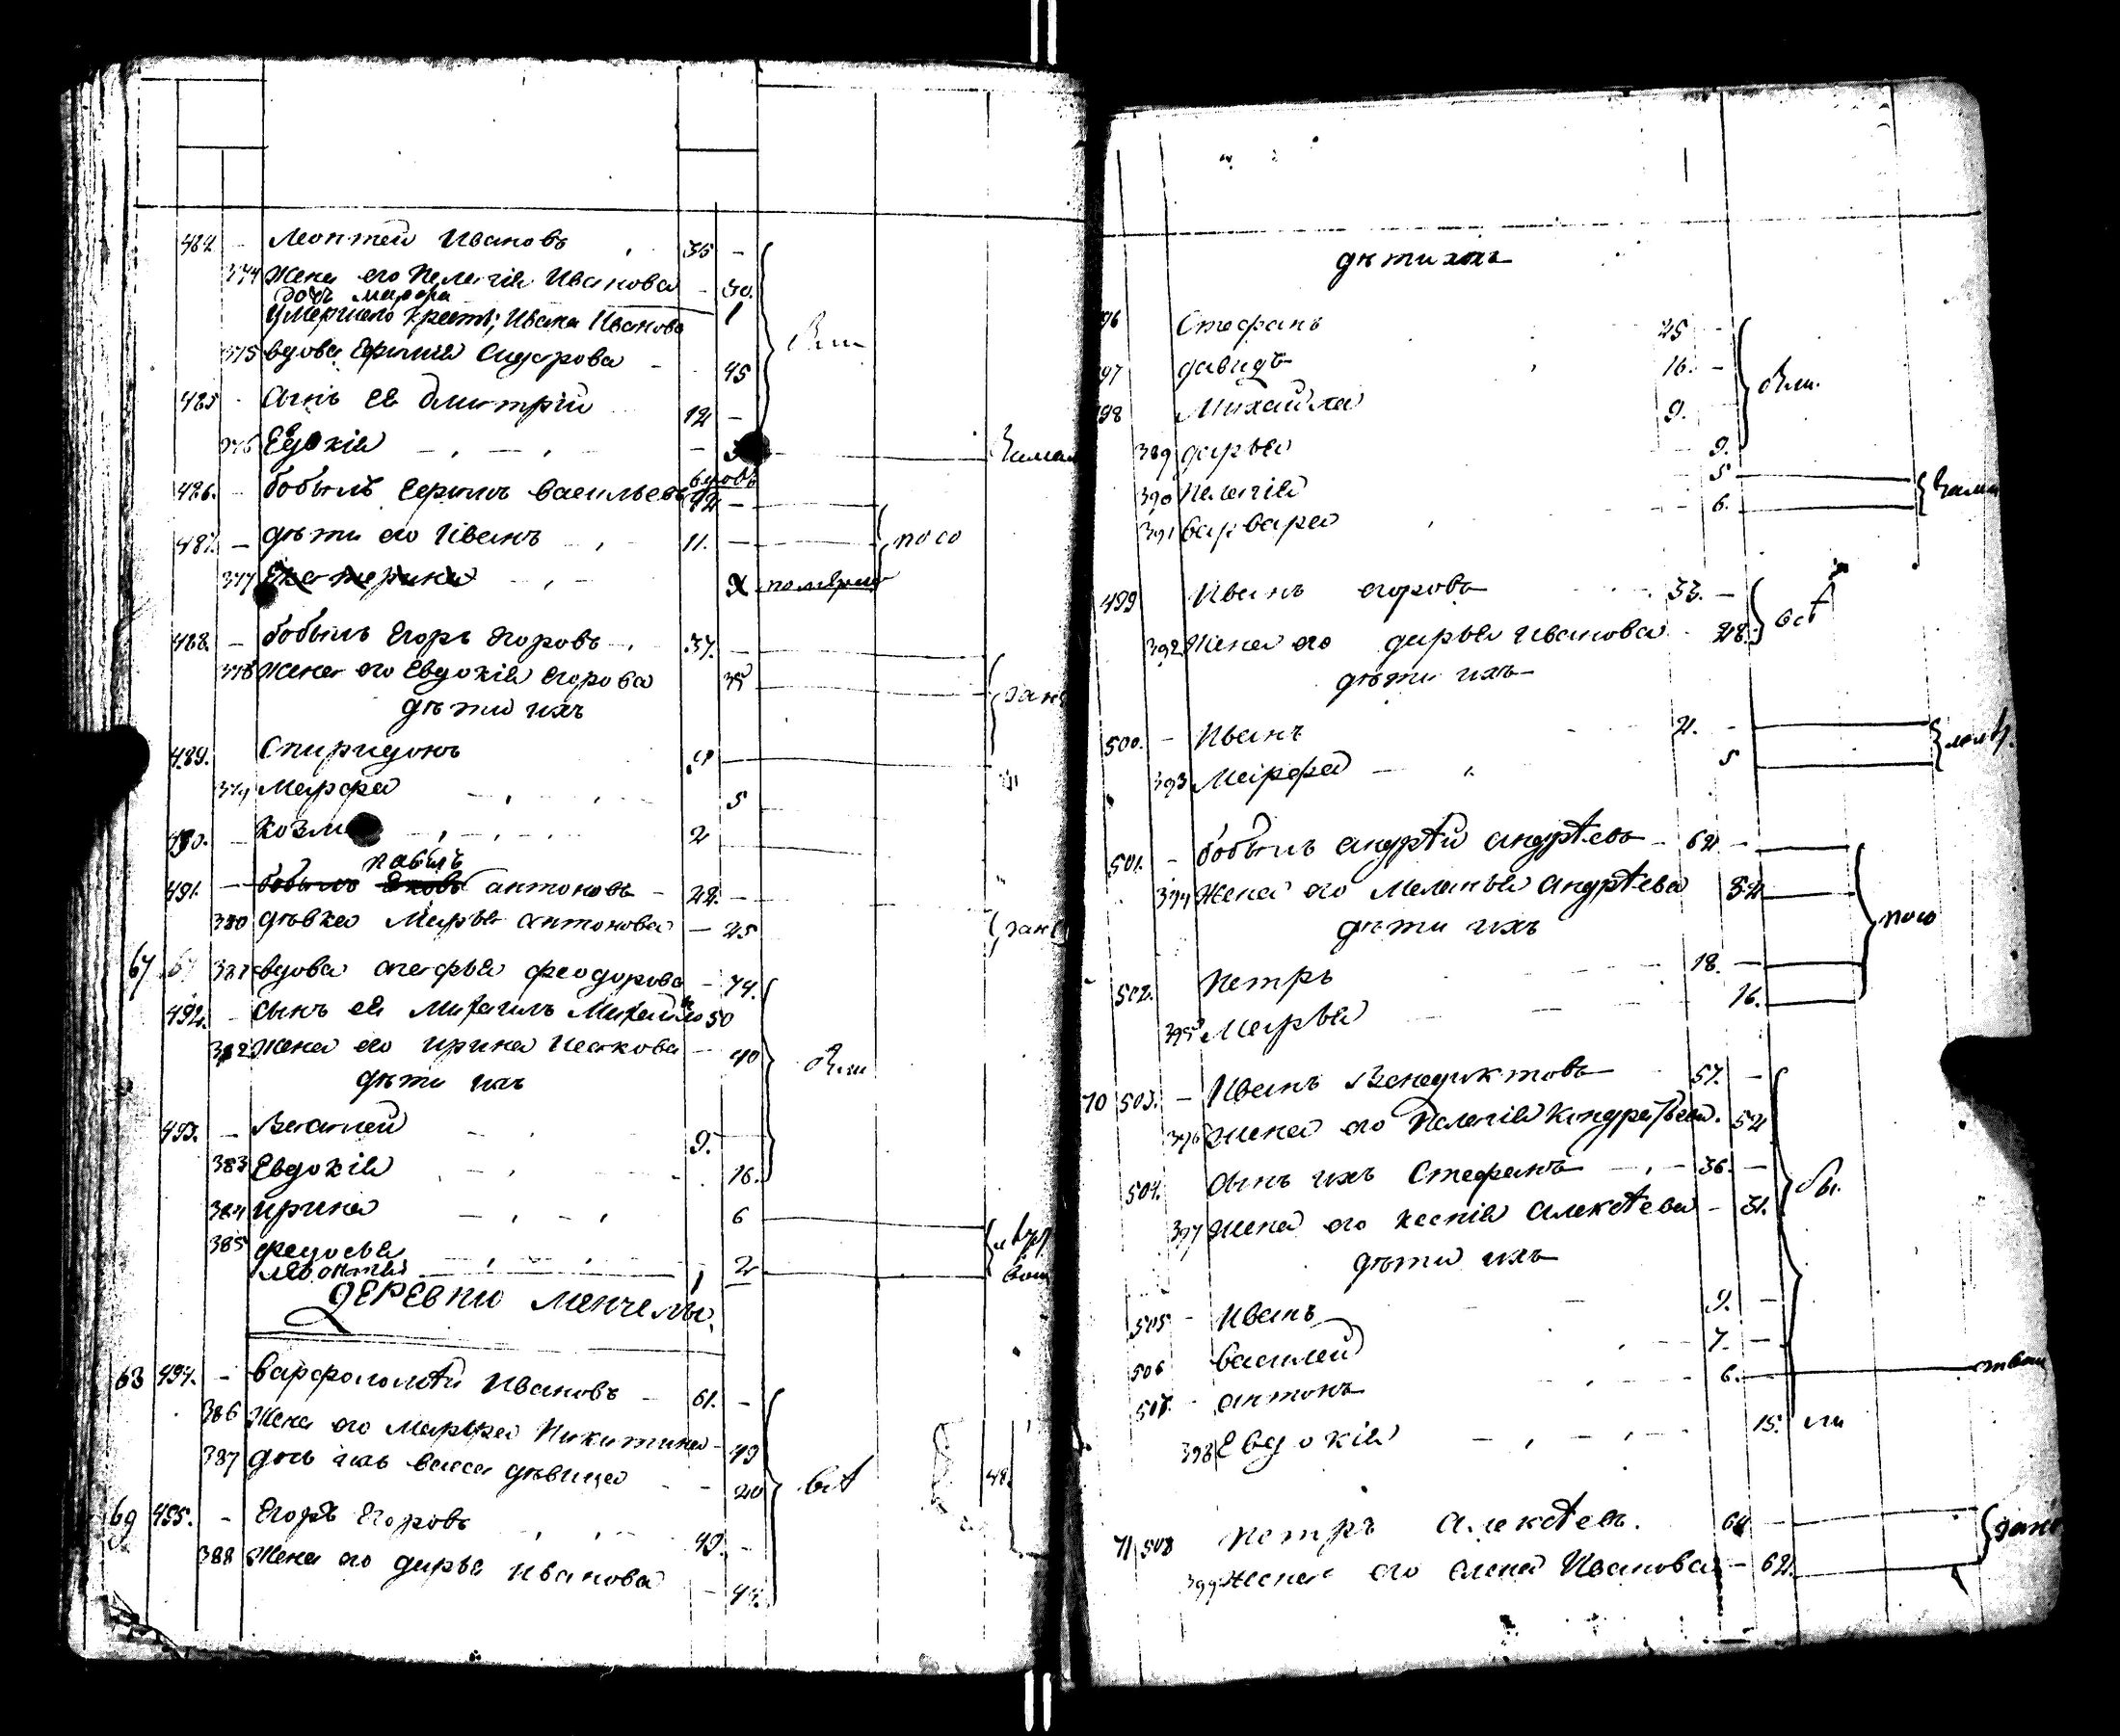 484 - Леонтей Ивановъ 35 -
374 Жена его Пелагія Иванова - 30.
дочь Марфа 1
умершаго крест; Ивана Иванова
375 вдова Ефимія Сидорова - 45
485 - Сынъ ея Дмитрій 12 -
376 Евдокія - -
вдовъ
486. - бобыль Ефимъ Васильевъ 42 -
487. - дѣти его Иванъ 11. - по со
377 Екатерина померла
488. - бобыль Егоръ Егоровъ 37. -
378 Жена его Евдокія Егорова 35
дѣти ихъ
489. Спиридонъ 9
379 Марфа 5
490. - Козма 2
павелъ
491. - бобыль Яковъ антоновъ - 22. -
380 дѣвка Марья антонова - 25
67 67 381 вдова Агафья Феодорова - 74.
492. - Сынъ ея Михаилъ Михайло 50
382 Жена его Ирина Исакова - 40
дѣти ихъ
493. - Василей 9.
383 Евдокія 16.
384 Ирина 6
385 Федосья 2
Леонтей 1
ДЕРЕВНЮ Менчелы.
68 494. - Варфоломѣй Ивановъ - 61. -
386 Жена его Марфа Никитина - 49
387 дочь ихъ васса дѣвица - 20
69 495. - Егоръ Егоровъ 49. -
388 Жена его дарья Иванова - 44.
дѣти ихъ
96 Стефанъ 25 -
97 давидъ 16. -
98 Михайла 9. -
389 дарья - 9.
390 Пелагія 5
391 варвара - 6.
499 Иванъ егоровъ 33. -
392 Жена его дарья Иванова - 28.
дѣти ихъ
500. - Иванъ 2. -
393 Марфа - 5
501. - бобыль андрѣй андрѣевъ - 62 -
394 Жена его Меланья андрѣева 52
дѣти ихъ по со
502. Петръ 18. -
395 Марья 16.
70 503. - Иванъ Венедиктовъ 57. -
396 Жена его Пелагія Кондратьева. 52
504. Сынъ ихъ Стефанъ - 36. -
397 Жена его Ксенія алексѣева - 31.
дѣти ихъ
505 - Иванъ 9. -
506 василей 7. -
507. - антонъ 6.
398 Евдокія - 15.
71 508 Петръ алексѣевъ. 64 -
399 Жена его Елена Иванова - 62.